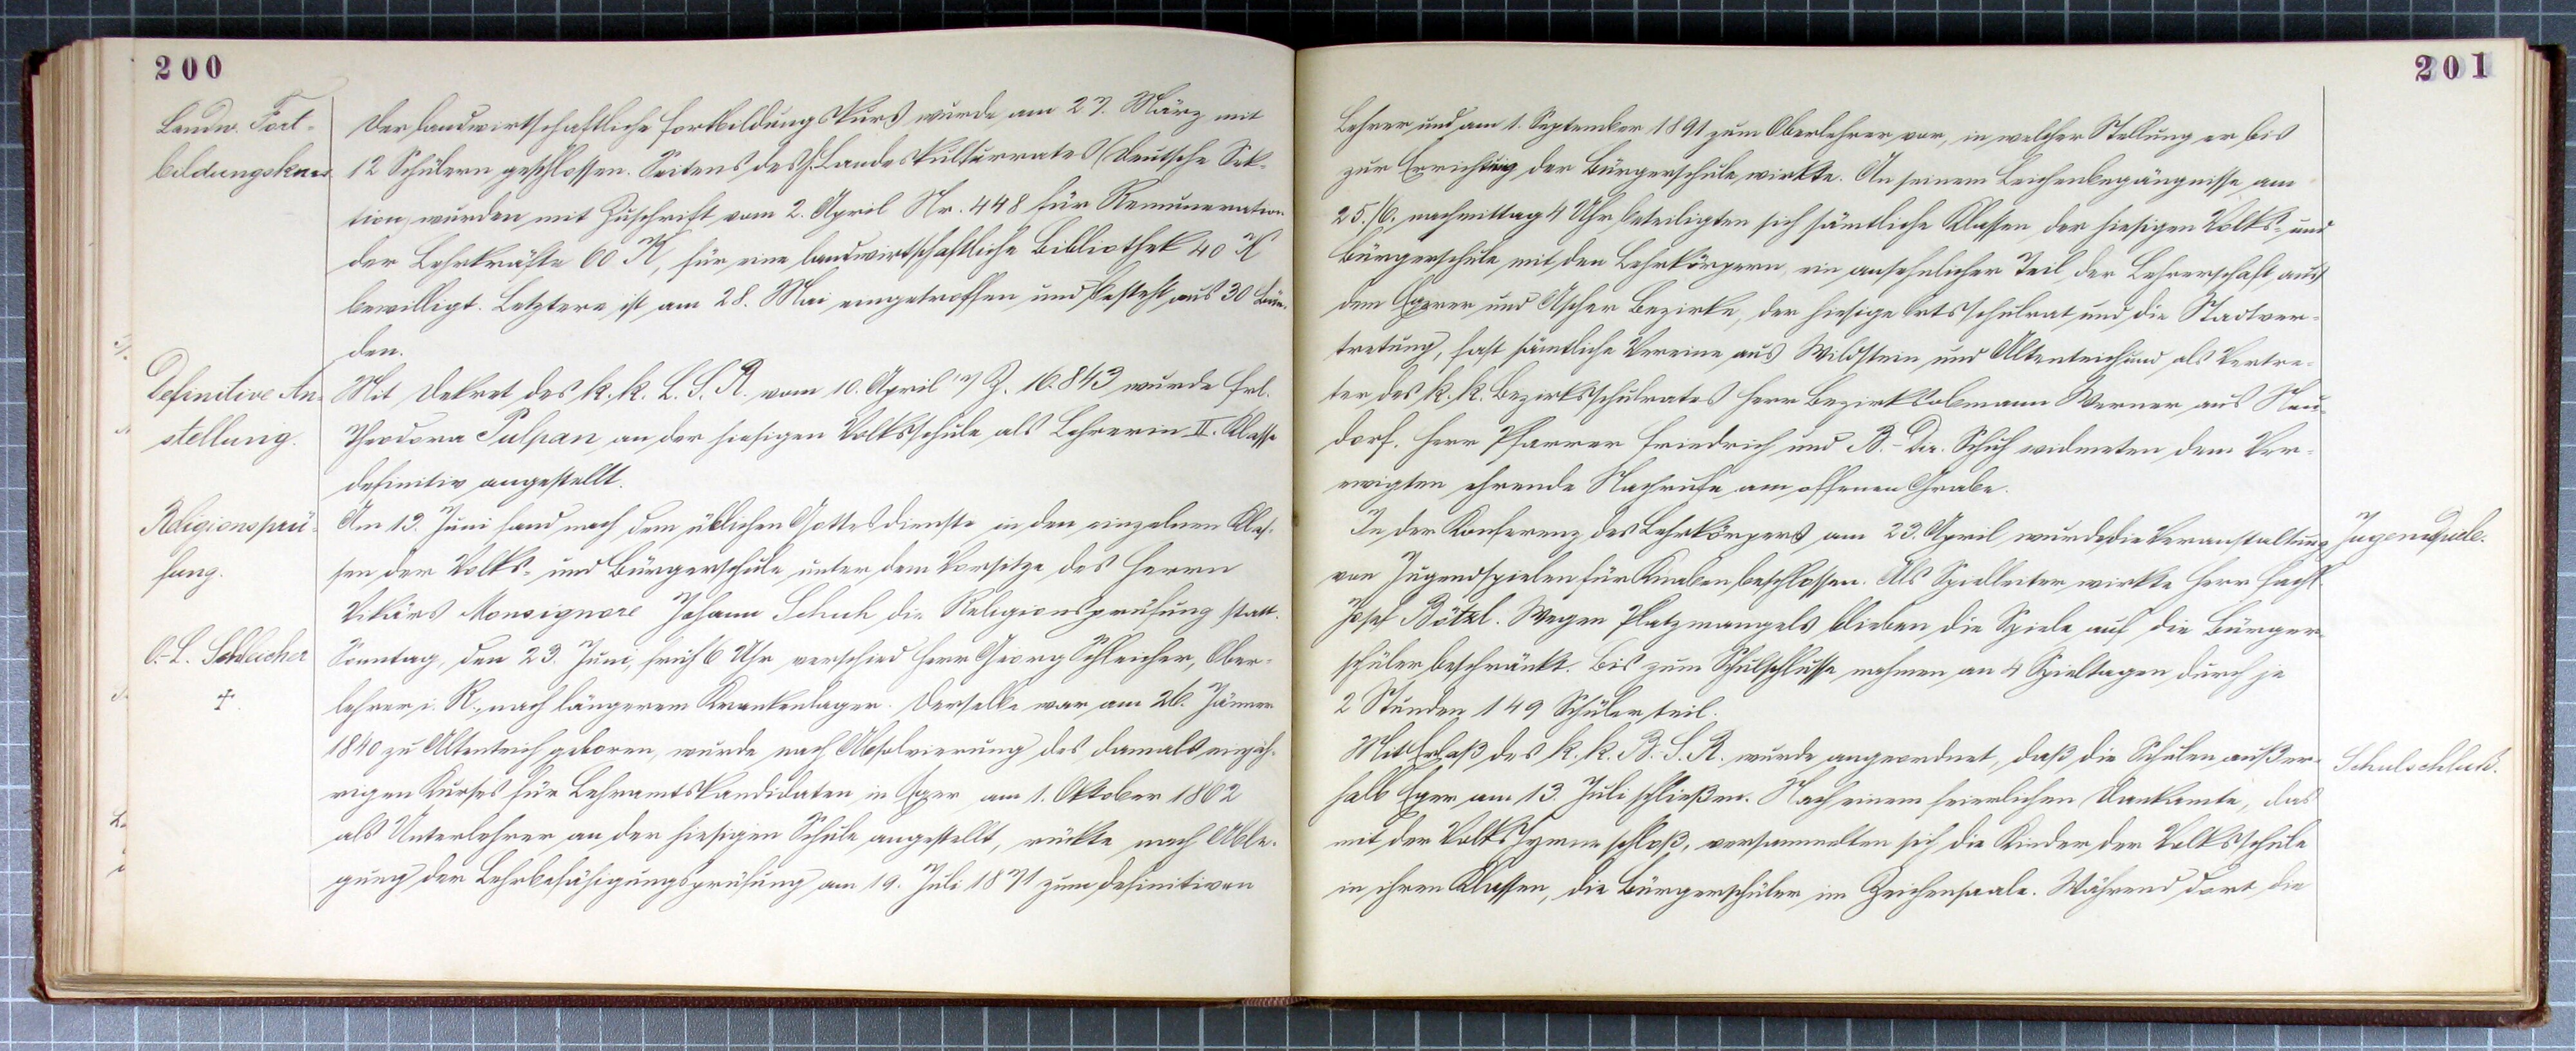 200
Landw. Fort-
bildungskurs
Der landwirtschaftliche Fortbildungskurs wurde am 27. März mit
12 Schülern geschlossen. Seitens des Landeskulturrates (deutsche Sek-
tion) wurden mit Zuschrift vom 2. April Nr. 448 für Remuneration
der Lehrkräfte 60 K, für eine landwirtschaftliche Bibliothek 40 K
bewilligt. Letztere ist am 28. Mai eingetroffen und besteht aus 30 Bän-
den.
Definitive An-
stellung.
Mit Dekret des k. k. L. S. R. vom 10. April Z. 16.843 wurde Frl.
Theodora Pulpan an der hiesigen Volksschule als Lehrerin II. Klasse
definitiv angestellt.
Religionsprü-
fung.
Am 13. Juni fand nach dem üblichen Gottesdienste in den einzelnen Klas-
sen der Volks- und Bürgerschule unter dem Vorsitze des Herrn
Vikärs Monsignore Johann Schuh die Religionsprüfung statt.
O.-L. Schleicher
†.
Sonntag, den 23. Juni, früh 6 Uhr verschied Herr Georg Schleicher, Ober-
lehrer i. R., nach längerem Krankenlager. Derselbe war am 26. Jänner
1840 zu Altenteich geboren, wurde nach Absolvierung des damals einjäh-
rigen Kurses für Lehramtskandidaten in Eger am 1. Oktober 1862
als Unterlehrer an der hiesigen Schule angestellt, rückte nach Able-
gung der Lehrbefähigungsprüfung am 19. Juli 1871 zum definitiven
201
Lehrer und am 1. September 1891 zum Oberlehrer vor, in welcher Stellung er bis
zur Errichtung der Bürgerschule wirkte. An seinem Leichenbegängnisse am
25./6. nachmittag 4 Uhr beteiligten sich sämtliche Klassen der hiesigen Volks- und
Bürgerschule mit den Lehrkörpern, ein ansehnlicher Teil der Lehrerschaft aus
dem Egerer und Ascher Bezirke, der hiesige Ortsschulrat und die Stadtver-
tretung, fast sämtliche Vereine aus Wildstein und Altenteich und als Vertre-
ter des k. k. Bezirksschulrates Herr Bezirksobmann Werner aus Neu-
dorf. Herr Pfarrer Friedrich und B.-Dir. Schuh widmeten dem Ver-
ewigten ehrende Nachrufe am offenen Grabe.
In der Konferenz des Lehrkörpers am 23. April wurde die Veranstaltung
von Jugendspielen für Knaben beschlossen. Als Spielleiter wirkte Herr Fachl.
Josef Bötzl. Wegen Platzmangels blieben die Spiele auf die Bürger-
schüler beschränkt. Bis zum Schulschlusse nahmen an 4 Spieltagen durch je
2 Stunden 149 Schüler teil.
Jugendspiele.
Mit Erlaß des k. k. B. S. R. wurde angeordnet, daß die Schulen außer-
halb Eger am 13. Juli schließen. Nach einem feierlichen Dankamte, das
mit der Volkshymne schloß, versammelten sich die Kinder der Volksschule
in ihren Klassen, die Bürgerschüler im Zeichensaale. Während dort die
Schulschluß.